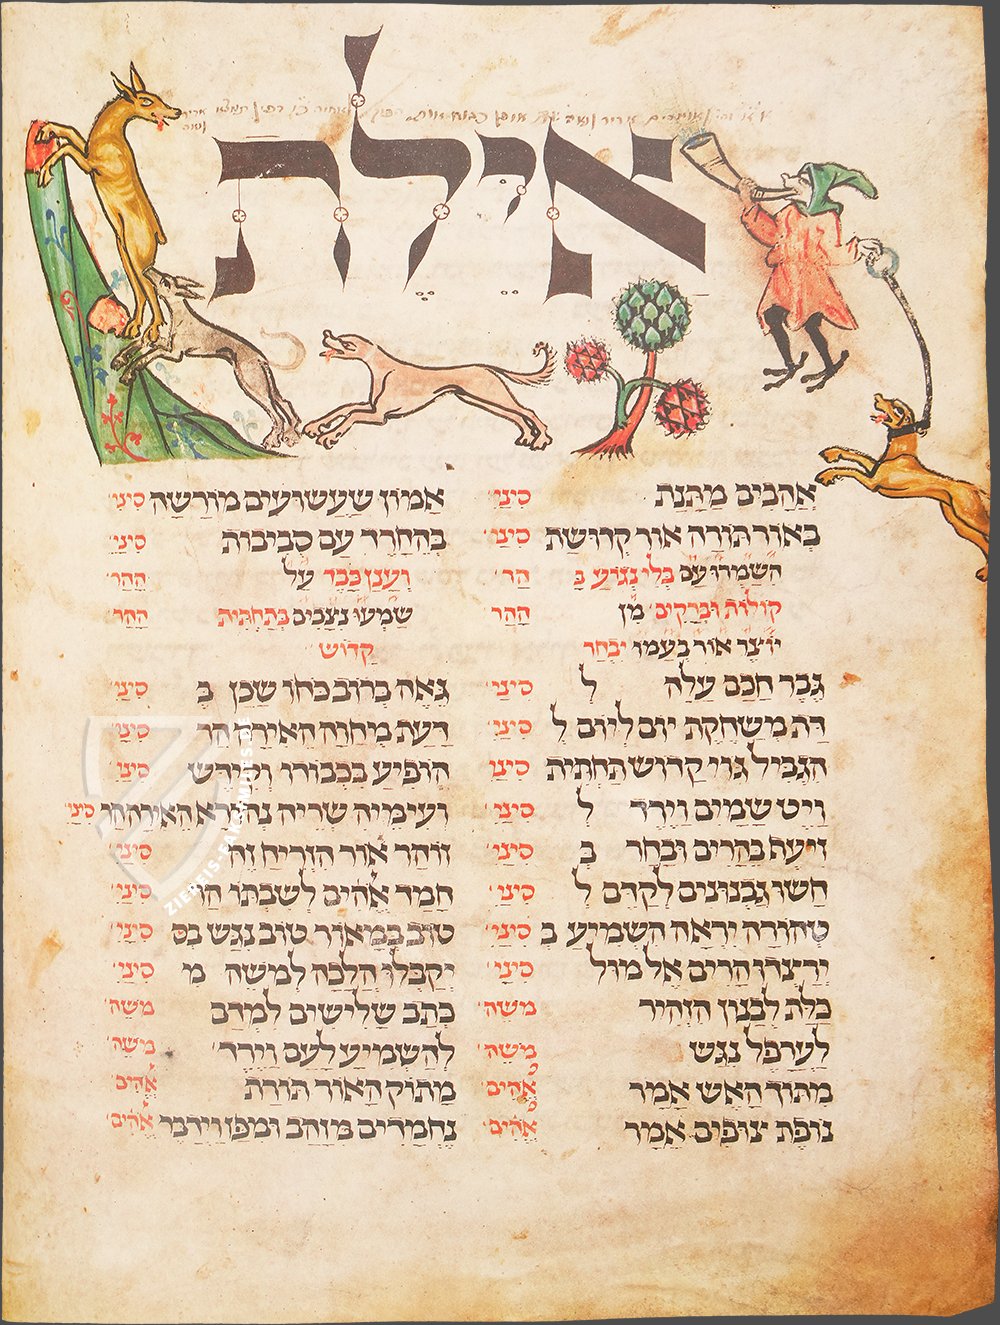 אילת
אֲהָבִים מַתְּנַת סִינַי
אָמוֹן שַׁעֲשׁוּעִים מוֹרָשָׁה סִינַי
בְּאוֹר תּוֹרָה אוֹר קְדוּשַּׁת סִינַי
בְּהֵחָרֵד עַם סְבִיבוֹת סִינַי
השמרו עם בְּלִי נְגֹועַ בָּ הר
וְעָנָן כָּבֵד עַל הָהָר
קולות וברקים מִן הָהָר
שמעו נצבים בְּתַחְתִּית הָהָר
יוצר אור בעמו יבחר
קדוש
גֶּבֶר חָכָם עָלָה לְ סִינַי
גֵּאֶה בְּרוֹב כֹּחוֹ שָׁכַן בְּ סִינַי
דָּת מְשַׂחֶקֶת יוֹם לְיוֹם לְ סִינַי
דַּעַת מִחַוֶּה הֵאִירָה הַר סִינַי
הגביל גוי קדוש תחתית סִינַי
הופיע בכבודו וקידש סִינַי
וַיֵּט שָׁמַיִם וַיֵּרֶד לְ סִינַי
ועימיה שריה נהורא האיר ההר סיני
זִיעַת בֶּהָרִים וּבָחַר בְּ סִינַי
זוֹהַר אוֹר הִזְרִיחַ זֶה סִינַי
חשו גבנונים לקדם ל סִינַי
חָמַד אֱלֹהִים לְשִׁבְתּוֹ הַר סִינַי
טְהוֹרָה יִרְאָה הִשְׁמִיעַ בְּ סִינַי
טוֹב בַּמָּאוֹר טוֹב נִגַּשׁ בְּסִ סִינַי
יְרַצְּדוּ הָרִים אֶל מוּל סִינַי
יְקַבְּלוּ הֲלָכָה לְמֹשֶׁה מִ סִינַי
כַּלַּת לְבָנוֹן הִזְהִיר מֹשֶׁה
כְּתַב שָׁלִישִׁים לִמְּדָם מֹשֶׁה
לָעֲרָפֶל נִגַּשׁ מֹשֶׁה
לְהַשְׁמִיעַ לָעָם וַיֵּרֶד מֹשֶׁה
מִתּוֹךְ הָאֵשׁ אָמַר אֱלֹהִים
מָתוֹק הָאוֹר תּוֹרַת אֱלֹהִים
נוֹפֶת צוּפִים אָמַר אֱלֹהִים
נֶחֱמָדִים מִזָּהָב וּמִפָּז וַיְדַבֵּר אֱלֹהִים
ZIEREIS-FAKSIMILES.DE